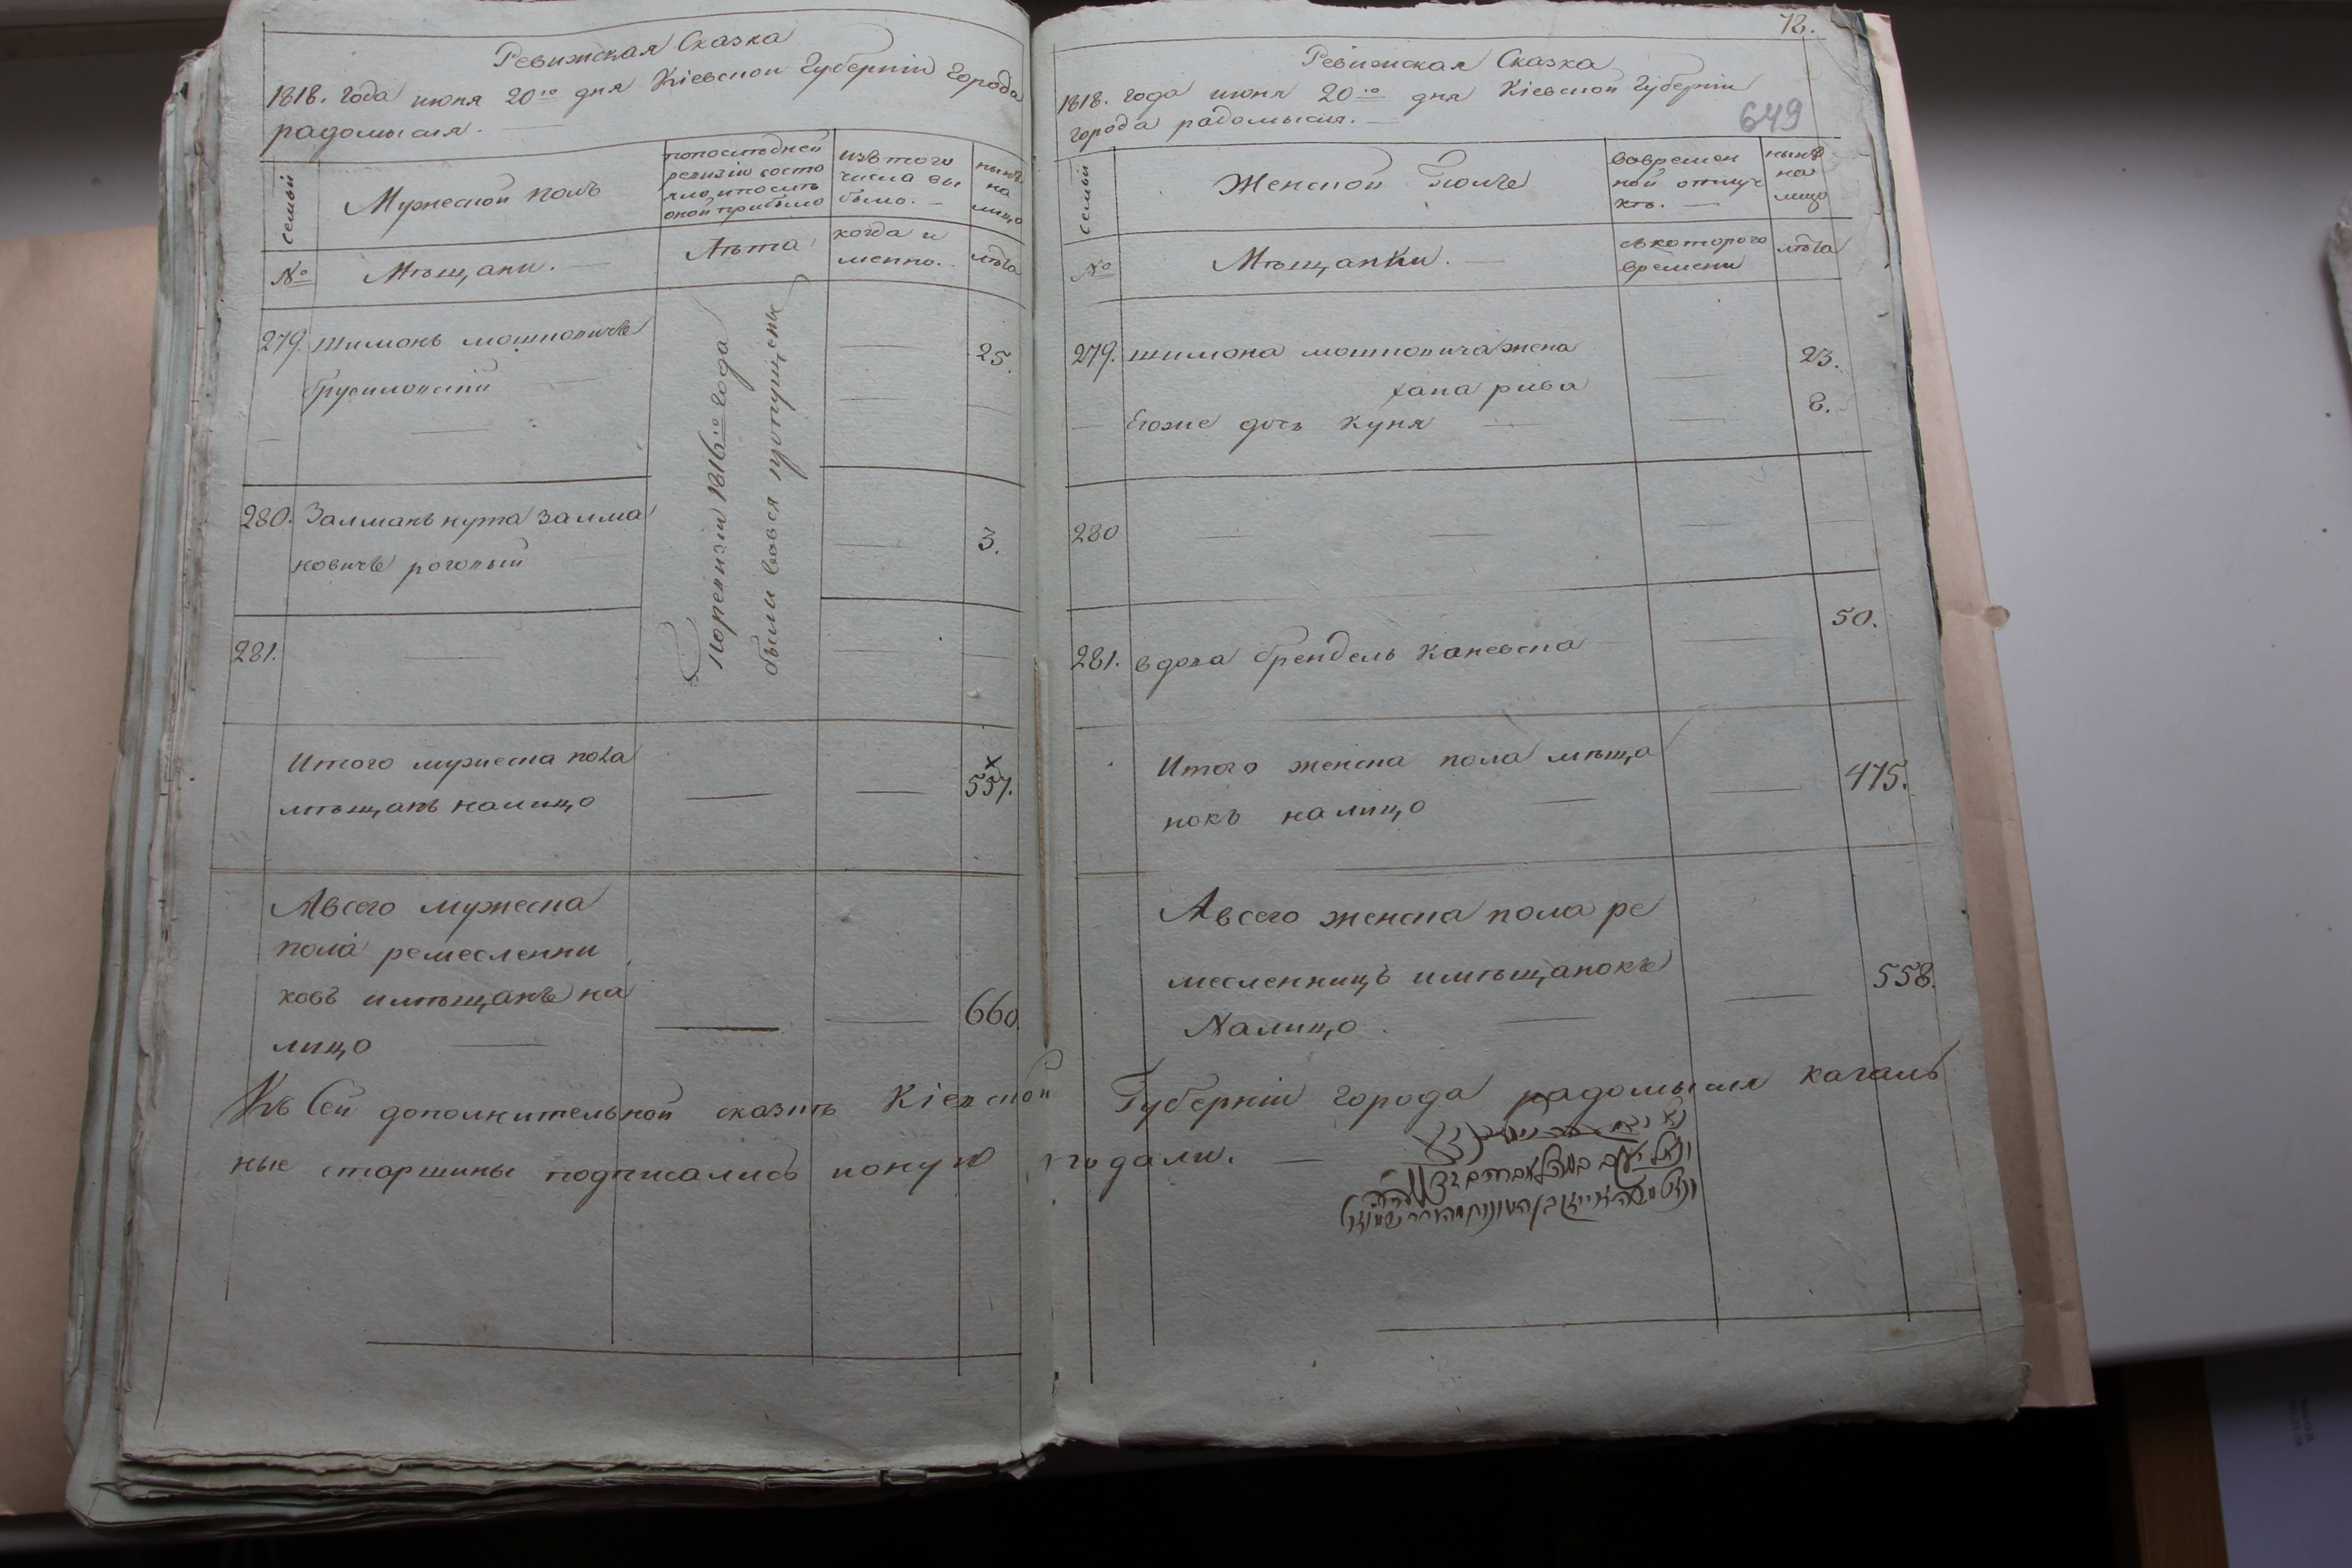 Ревижская Сказка
1818. года июня 20го дня Кіевской Губерніи Города
радомысля.
семьи
Мужеской полъ
попоследней
ревизіи состо
яло, ипосль
оной прибыло
изътого
числа вы
было.
нынѣ
на
лицо
№
Мѣщани.
Лѣта
когда и
менно.
лѣта
279. шимонъ мошковичъ
брусиловскій
25.
280. Залманъ нута залма
новичъ роговый
3.
281.
поревизіи 1816го года
были вовся пропущены
Итого мужеска пола
мѣщанъ налицо
557.
Авсего мужеска
пола ремесленни
ковъ имѣщанъ на
лицо
660.
72.
Ревижская Сказка
1818. года июня 20го дня Кіевской Губерніи
города радомысля.
649
семьи
Женской полъ
вовремен
ной отлуч
кѣ.
нынѣ
на
лицо
№
Мѣщанки.
съкоторого
времени
лѣта
279. шимона мошковича жена
хана рива
23.
Егоже дочь куня
8.
280
281. вдова брендель каневска
50.
Итого женска пола мѣща
нокъ налицо
475.
Авсего женска пола ре
месленницъ имѣщанокъ
Налицо
558.
Къ Сей дополнительной сказкѣ Кіевской Губерніи города радомысля кагаль
ные старшины подписались ионую подали.